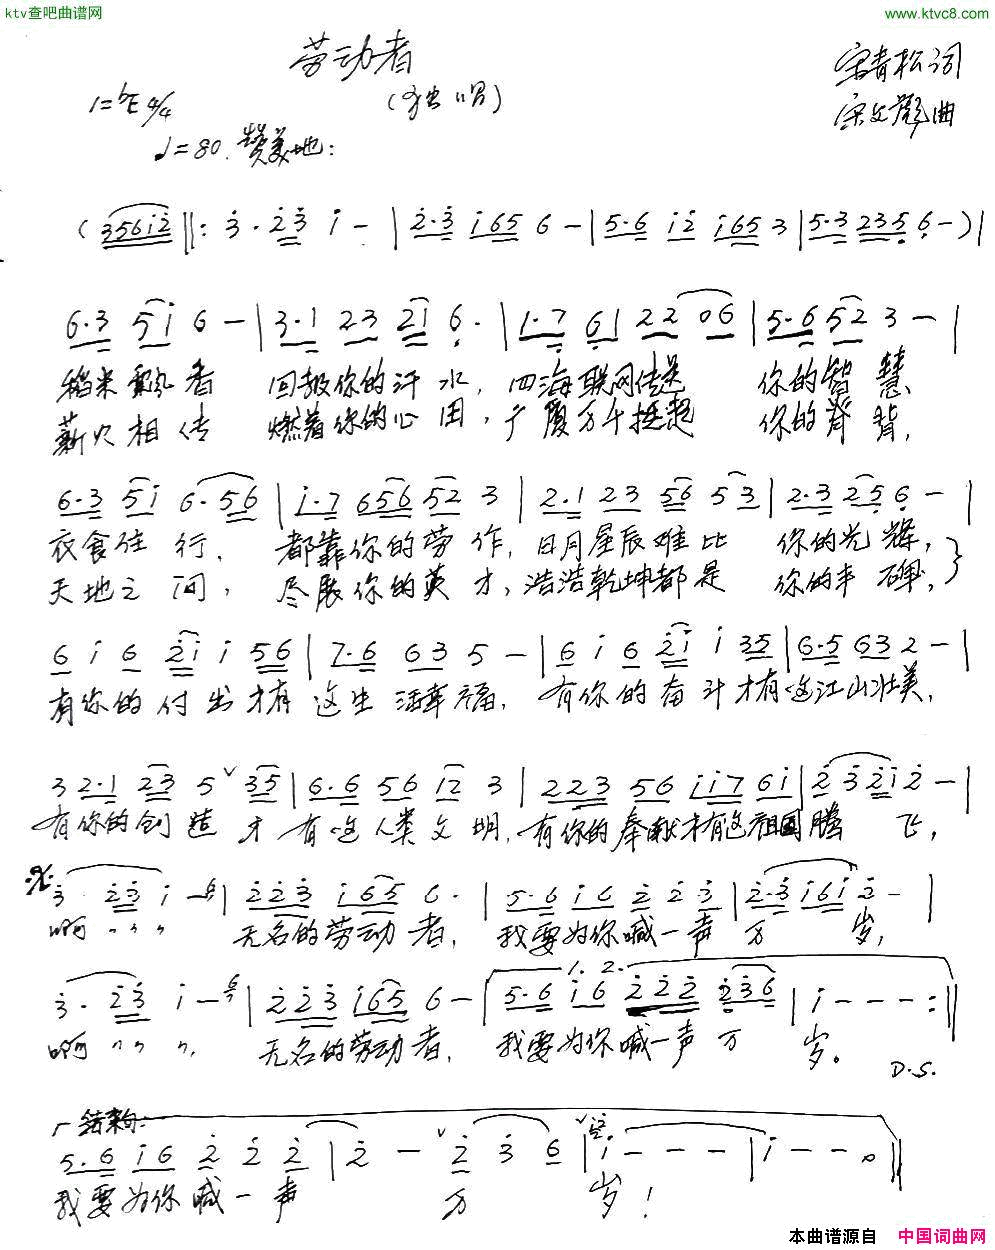 ktv查吧曲谱网 www.ktvc8.com
劳动者
(独唱)
宋青松词
宋文彪曲
1=♭E 4/4
♩=80. 赞美地:
(3561̇2̇ ‖: 3̇·2̇3̇ 1̇ - | 2̇·3̇ 1̇65 6 - | 5·6 1̇2̇ 1̇65 3 | 5·3 235̣ 6̣ -) |
6·3 51̇ 6 - | 3·1 23 21 6̣· | 1·7̣ 6̣1 22 06 | 5·6 52 3 - |
稻米飘香 回报你的汗水, 四海联网传递 你的智慧、
薪火相传 燃着你的心田, 广厦万千挺起 你的脊背,
6·3 51̇ 6·56 | 1̇·7 656 52 3 | 2·1 23 56 53 | 2·3 25̣ 6̣ - |
衣食住行, 都靠你的劳作, 日月星辰难比 你的光辉,
天地之间, 尽展你的英才, 浩浩乾坤都是 你的丰碑,
6 1̇ 6 2̇1̇ 1̇ 56 | 7·6 63 5 - | 6 1̇ 6 2̇1̇ 1̇ 35 | 6·5 63 2 - |
有你的付出才有这生活幸福, 有你的奋斗才有这江山壮美,
3 2·1 23 5 ˅ 35 | 6·6 56 1̇2̇ 3 | 223 56 1̇1̇7 61̇ | 2̇ 3̇ 2̇1̇ 2̇ - |
有你的创造 才有这人类文明, 有你的奉献才有这祖国腾飞,
3̇ 2̇3̇ 1̇ - | 2̇2̇3̇ 1̇65 6· | 5·6 1̇6 2̇ 2̇ 3̇ | 2̇·3̇ 1̇61̇ 3̇ - |
啊 〃 〃 〃 无名的劳动者, 我要为你喊一声万岁,
1. 2.
3̇·2̇3̇ 1̇ - | 2̇2̇3̇ 1̇65 6 - | 5·6 1̇6 2̇2̇2̇ 2̇36 | 1̇ - - - :‖
啊 〃 〃 〃, 无名的劳动者, 我要为你喊一声万岁。
D.S.
结束句:
5·6 1̇6 2̇ 2̇ 2̇ | 2̇ - ˅ 2̇ 3̇ 6 | ˅ 1̇ - - - | 1̇ - - 0 ‖
我要为你喊一声 万 岁!
本曲谱源自 中国词曲网